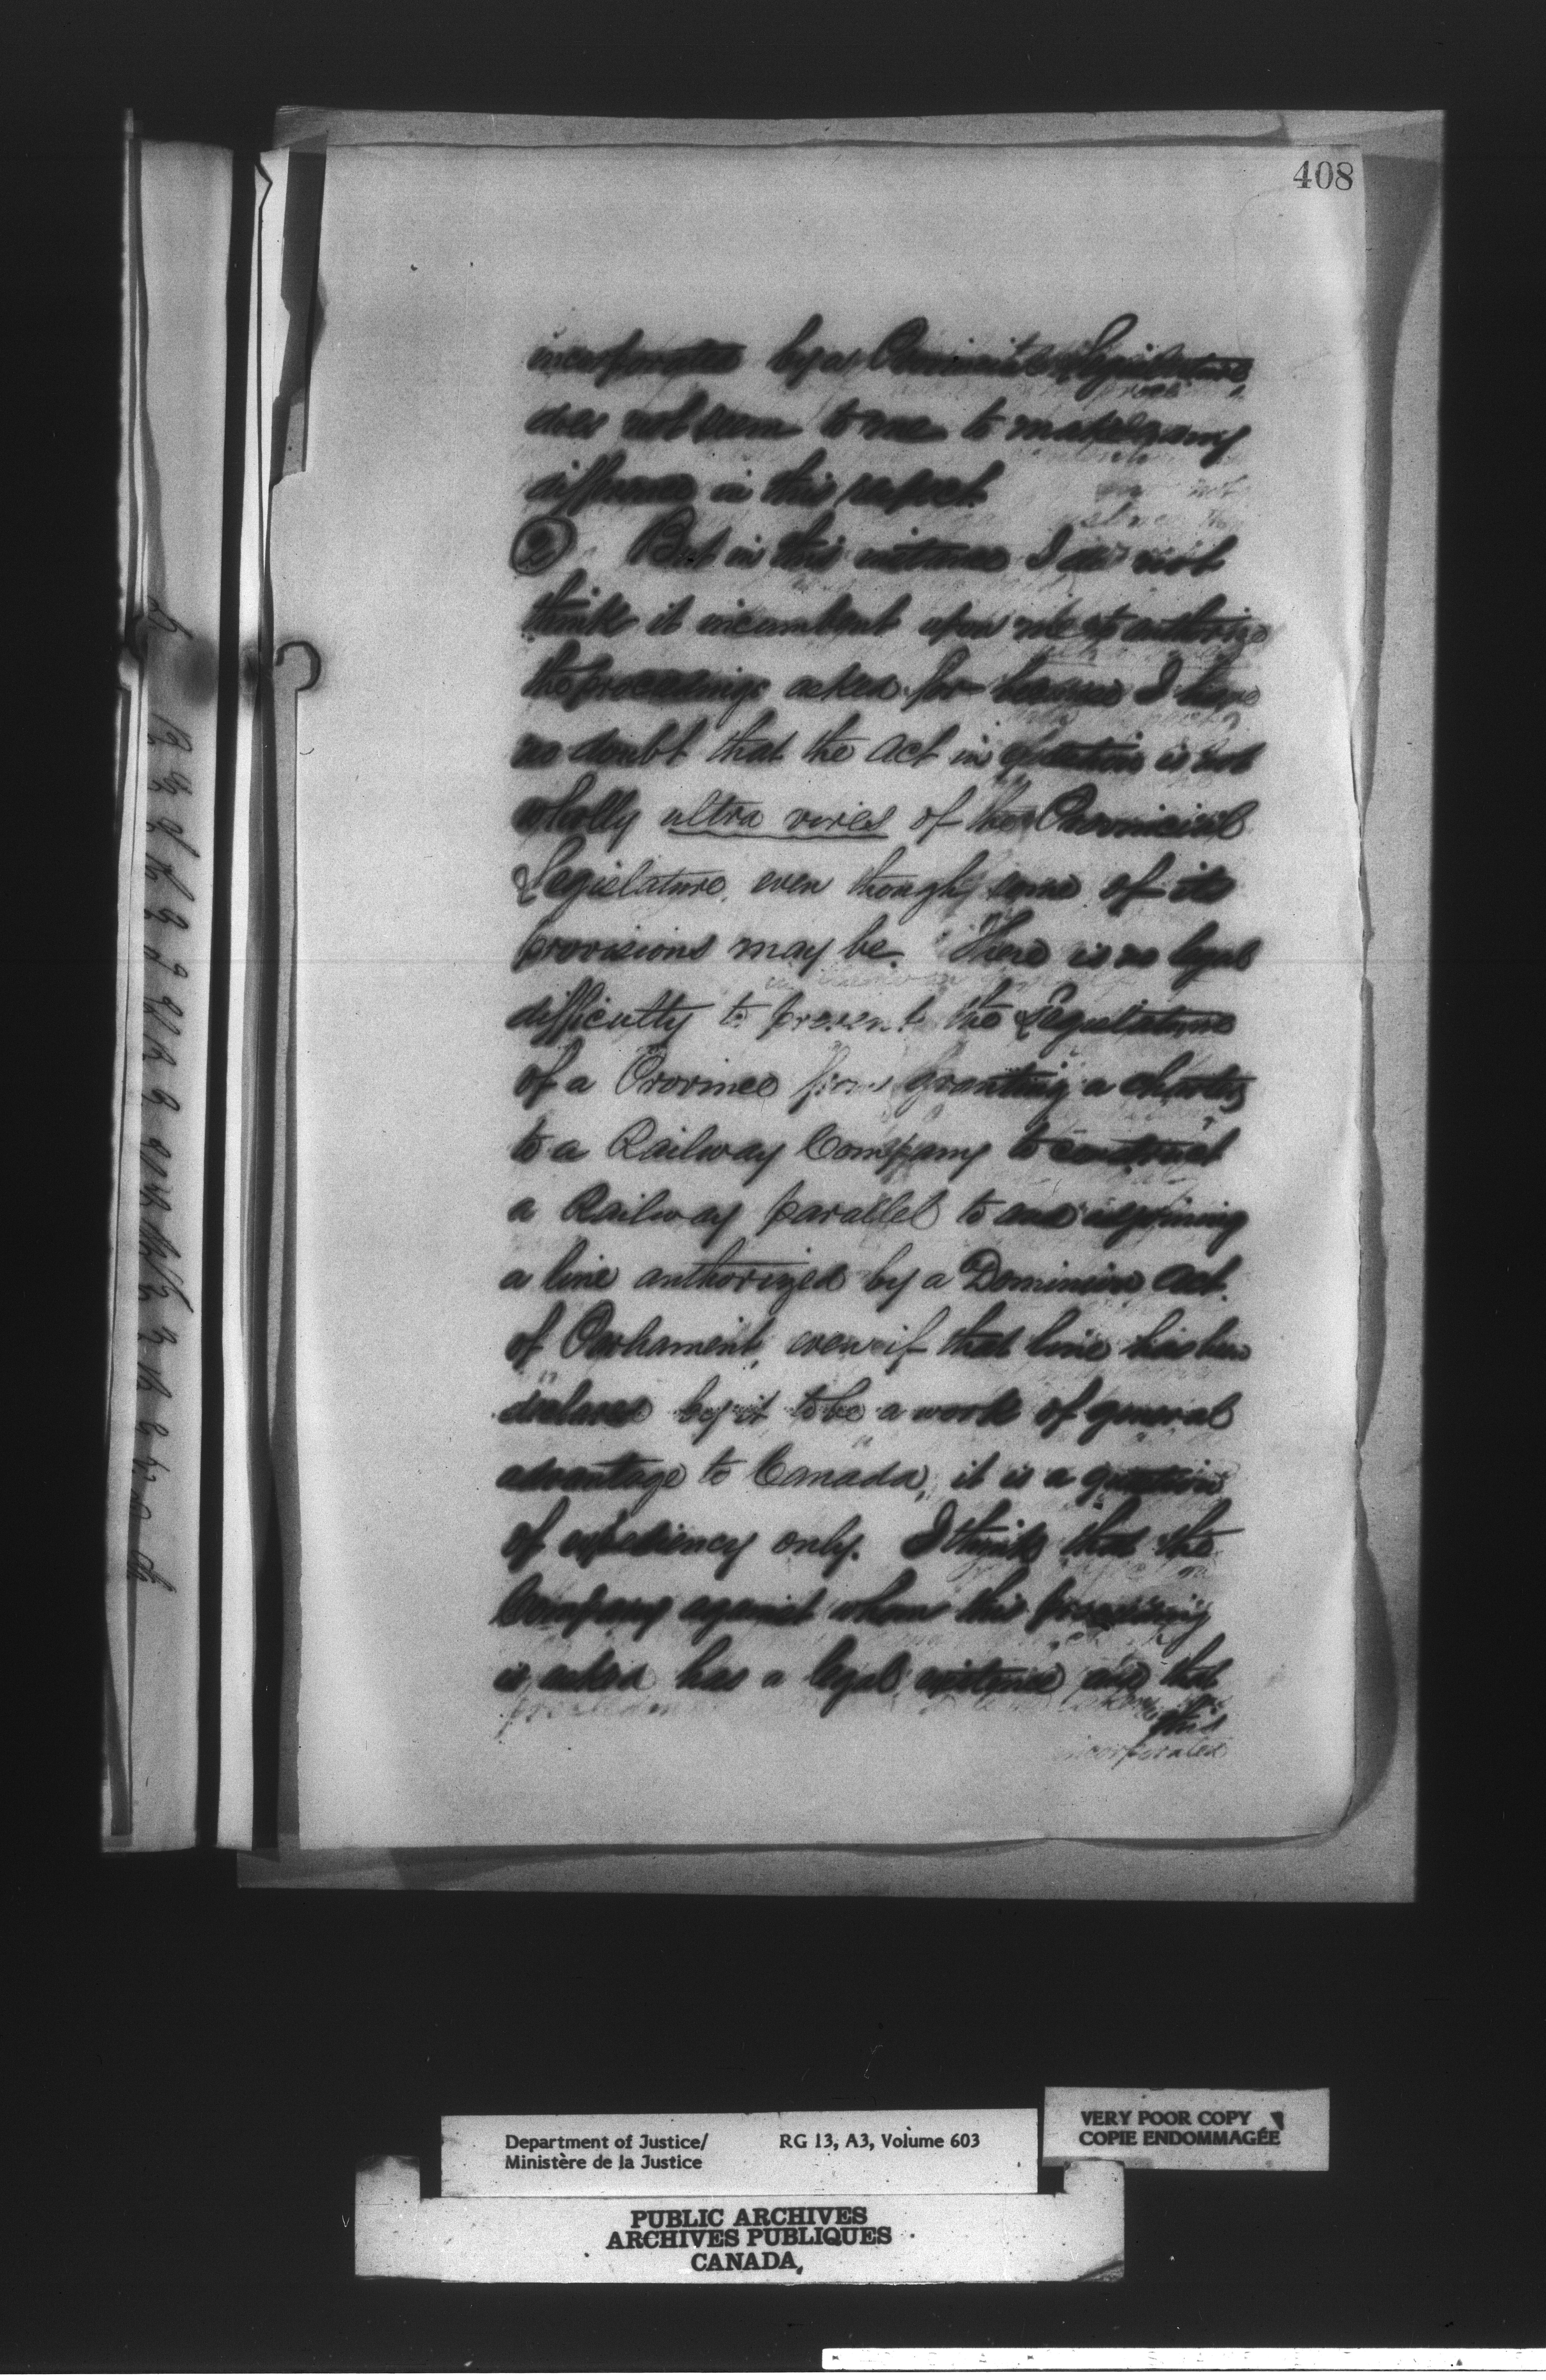 408
incorporated by a Provincial Legislature,
does not seem to me to make any
difference in this respect.
2 But in this instance I do not
think it incumbent upon me to authorize
the proceedings asked for because I have
no doubt that the Act in question is not
wholly ultra vires of the Provincial
Legislature, even though some of its
provisions may be. There is no legal
difficulty to prevent the Legislature
of a Province from granting a charter
to a Railway Company to construct
a Railway parallel to and adjoining
a line authorized by a Dominion Act
of Parliament, even if that line has been
declared by it to be a work of general
advantage to Canada, it is a question
of expediency only. I think that the
Company against whom this proceeding
is asked has a legal existence and that
this
incorporated
Department of Justice/ RG 13, A3, Volume 603
Ministère de la Justice
VERY POOR COPY
COPIE ENDOMMAGÉE
PUBLIC ARCHIVES
ARCHIVES PUBLIQUES
CANADA